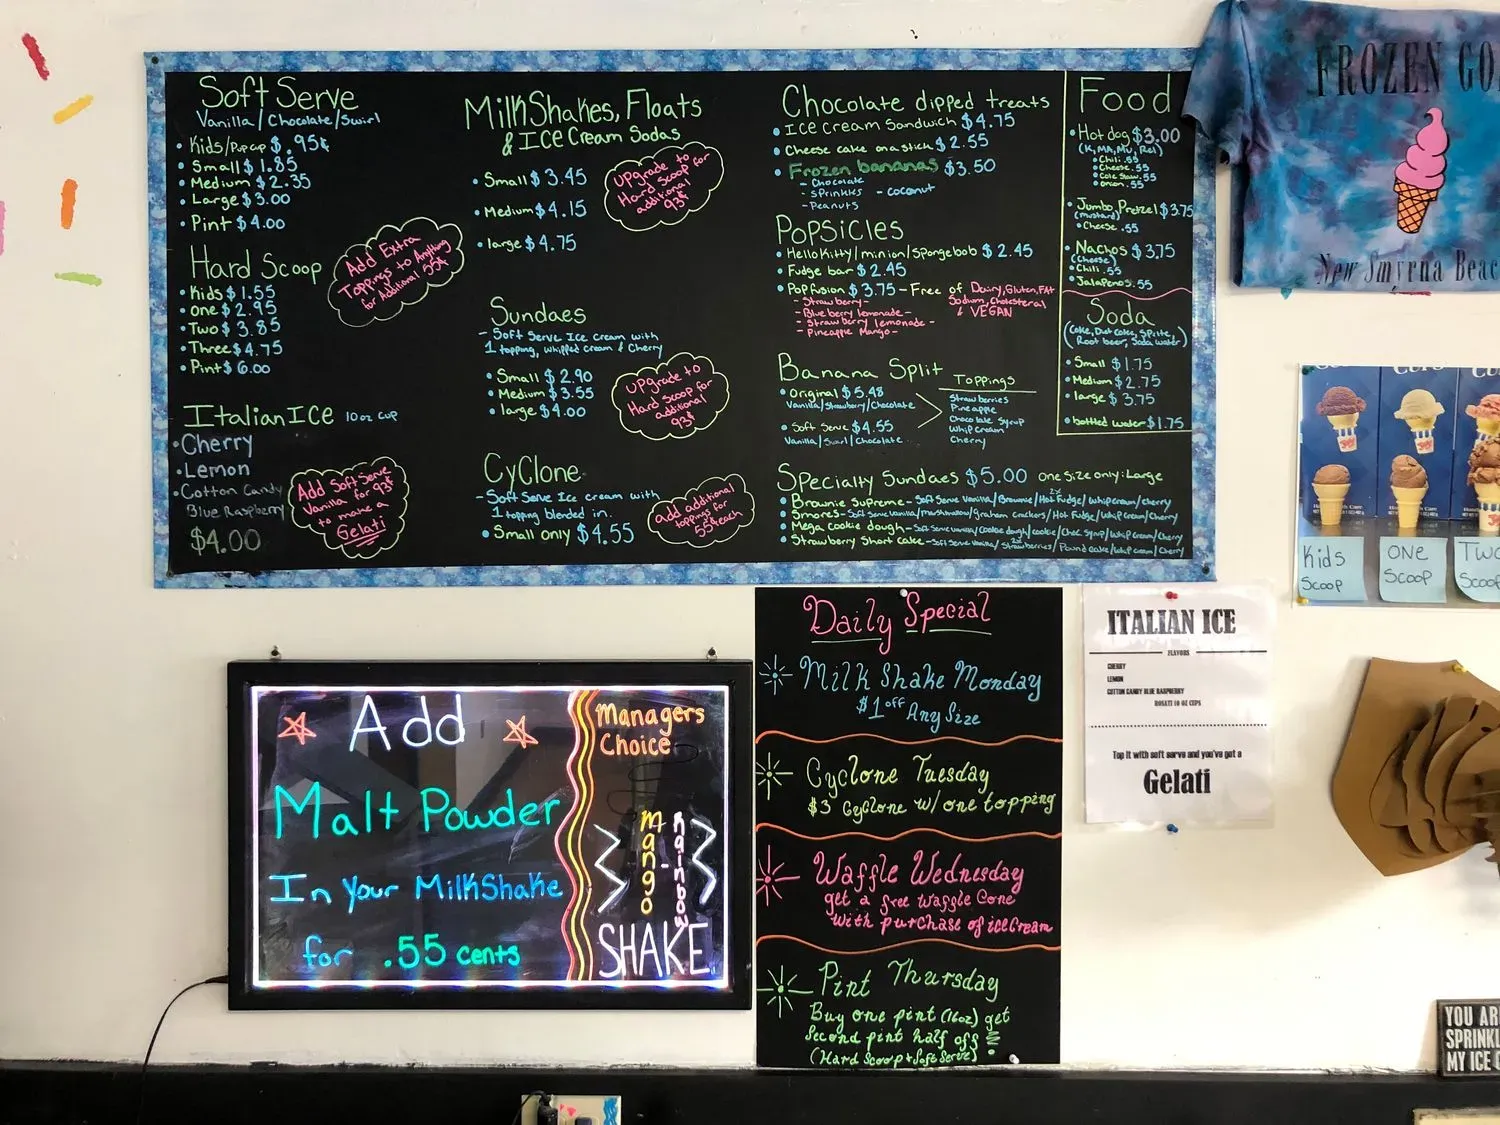 Soft Serve
Vanilla/Chocolate/Swirl
• Kids/Pup cup $.95¢
• Small $1.85
• Medium $2.35
• Large $3.00
• Pint $4.00
Hard Scoop
• Kids $1.55
• One $2.95
• Two $3.85
• Three $4.75
• Pint $6.00
Add Extra
Toppings to Anything
for Additional 55¢
Italian Ice 10oz cup
• Cherry
• Lemon
• Cotton Candy
Blue Raspberry
$4.00
Add Soft Serve
Vanilla for 93¢
to make a
Gelati
MilkShakes, Floats
& Ice Cream Sodas
• Small $3.45
• Medium $4.15
• large $4.75
upgrade to
Hard Scoop for
additional
93¢
Sundaes
- Soft Serve Ice cream with
1 topping, whipped cream & Cherry
• Small $2.90
• Medium $3.55
• large $4.00
upgrade to
Hard Scoop for
additional
93¢
Cyclone
- Soft Serve Ice cream with
1 topping blended in.
• Small only $4.55
add additional
toppings for
55¢ each
Chocolate dipped treats
• Ice cream Sandwich $4.75
• Cheese cake on a stick $2.55
• Frozen bananas $3.50
- Chocolate
- Sprinkles - coconut
- Peanuts
Popsicles
• Hello Kitty/minion/Spongebob $2.45
• Fudge bar $2.45
• Popfusion $3.75 - Free of Dairy, Gluten, FAT
Sodium, Cholesteral
& VEGAN
- Strawberry -
- Blueberry lemonade -
- Strawberry lemonade -
- Pineapple Mango -
Banana Split
• Original $5.48
Vanilla/Strawberry/Chocolate
• Soft Serve $4.55
Vanilla/Swirl/Chocolate
Toppings
Strawberries
Pineapple
Chocolate Syrup
Whip Cream
Cherry
Specialty Sundaes $5.00 one size only: Large
• Brownie Supreme - Soft Serve Vanilla/Brownie/2x Hot Fudge/Whip cream/cherry
• Smores - Soft serve vanilla/marshmallow/Graham crackers/Hot Fudge/Whip Cream/Cherry
• Mega cookie dough - Soft serve vanilla/Cookie dough/cookie/Choc Syrup/Whip Cream/Cherry
• Strawberry Short cake - Soft serve vanilla/2x Strawberries/Pound Cake/Whip cream/Cherry
Food
• Hot dog $3.00
(K, MA, Mu, Rel)
• Chili .55
• Cheese .55
• Cole Slaw .55
• Onion .55
• Jumbo Pretzel $3.75
(mustard)
• Cheese .55
• Nachos $3.75
(Cheese)
• Chili .55
• Jalapenos .55
Soda
(Coke, Diet Coke, Sprite,
Root beer, Soda water)
• Small $1.75
• Medium $2.75
• large $3.75
• bottled water $1.75
FROZEN GO
New Smyrna Beac
Kids
Scoop
ONE
Scoop
Two
Scoop
Add
Malt Powder
In Your MilkShake
for .55 cents
Managers
Choice
Mango
Rainbow
SHAKE
Daily Special
Milk Shake Monday
$1 off Any Size
Cyclone Tuesday
$3 Cyclone w/ one topping
Waffle Wednesday
get a free Waffle Cone
with purchase of iceCream
Pint Thursday
Buy one pint (16oz) get
Second pint half off
(Hard Scoop + Soft Serve)
ITALIAN ICE
FLAVORS
CHERRY
LEMON
COTTON CANDY BLUE RASPBERRY
ROSATI 10 OZ CUPS
Top it with soft serve and you've got a
Gelati
YOU AR
SPRINKL
MY ICE C